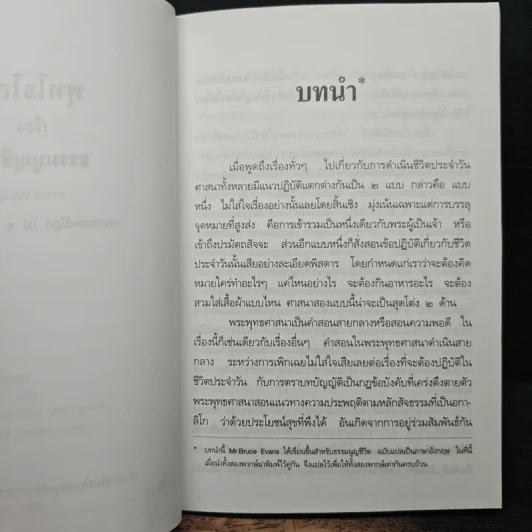 บทนำ*
เมื่อพูดถึงเรื่องทั่วๆ ไปเกี่ยวกับการดำเนินชีวิตประจำวัน
ศาสนาทั้งหลายมีแนวปฏิบัติแตกต่างกันเป็น ๒ แบบ กล่าวคือ แบบ
หนึ่ง ไม่ใส่ใจเรื่องอย่างนั้นเลยโดยสิ้นเชิง มุ่งเน้นเฉพาะแต่การบรรลุ
จุดหมายที่สูงส่ง คือการเข้ารวมเป็นหนึ่งเดียวกับพระผู้เป็นเจ้า หรือ
เข้าถึงปรมัตถสัจจะ ส่วนอีกแบบหนึ่งก็สั่งสอนข้อปฏิบัติเกี่ยวกับชีวิต
ประจำวันนั้นเสียอย่างละเอียดพิสดาร โดยกำหนดแก่เราว่าจะต้องคิด
หมายใคร่ทำอะไรๆ แค่ไหนอย่างไร จะต้องกินอาหารอะไร จะต้อง
สวมใส่เสื้อผ้าแบบไหน ศาสนาสองแบบนี้น่าจะเป็นสุดโต่ง ๒ ด้าน
พระพุทธศาสนาเป็นคำสอนสายกลางหรือสอนความพอดี ใน
เรื่องนี้ก็เช่นเดียวกับเรื่องอื่นๆ คำสอนในพระพุทธศาสนาดำเนินสาย
กลาง ระหว่างการเพิกเฉยไม่ใส่ใจเสียเลยต่อเรื่องที่จะต้องปฏิบัติใน
ชีวิตประจำวัน กับการตราบทบัญญัติเป็นกฎข้อบังคับที่เคร่งตึงตายตัว
พระพุทธศาสนาสอนแนวทางความประพฤติตามหลักสัจธรรมที่เป็นอกา-
ลิโก ว่าด้วยประโยชน์สุขที่พึงได้ อันเกิดจากการอยู่ร่วมสัมพันธ์กัน
* บทนำนี้ Mr.Bruce Evans ได้เขียนขึ้นสำหรับธรรมนูญชีวิต ฉบับแปลเป็นภาษาอังกฤษ ในที่นี้
เมื่อนำทั้งสองพากย์มาพิมพ์ไว้คู่กัน จึงแปลไว้เพื่อให้ทั้งสองพากย์เท่ากันครบถ้วน